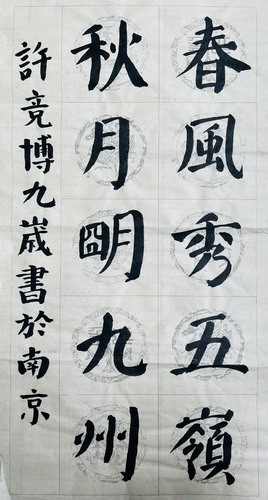 春風秀五嶺
秋月明九州
許竞博九歲書於南京